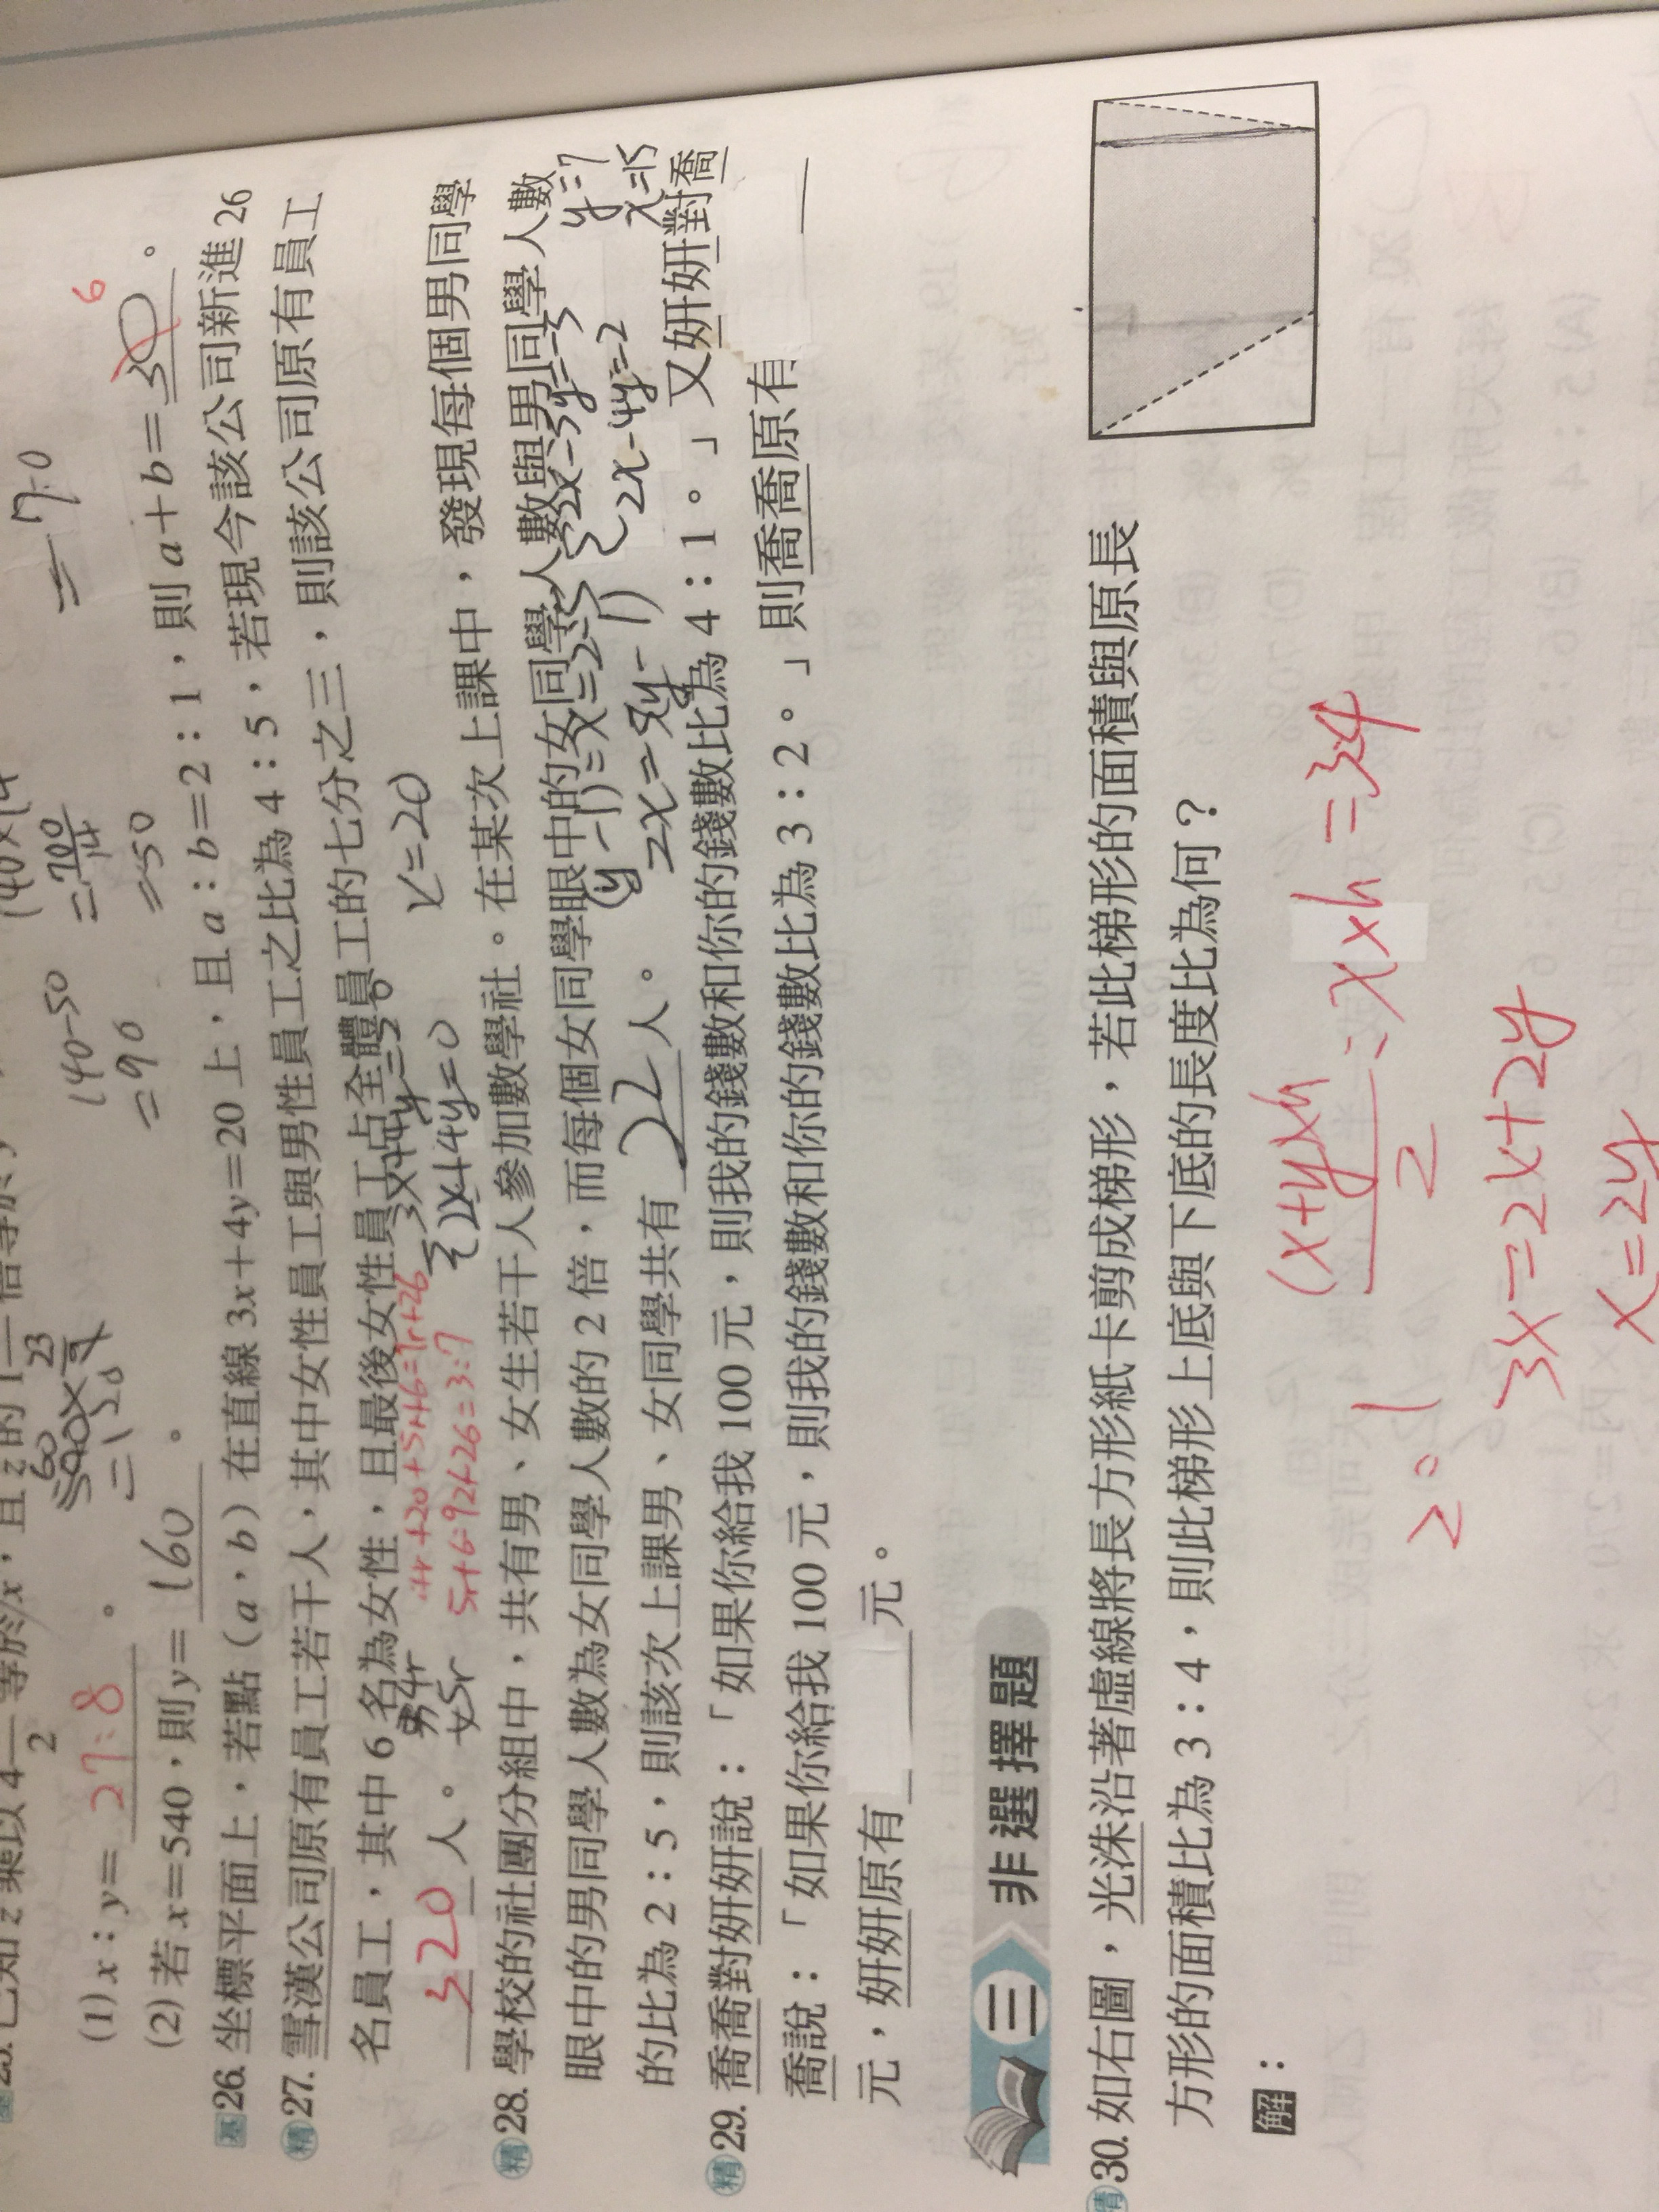 =-70
140×14
=700/14
=50
140-50
=90
(1) x:y= 27:8 。
(2)若 x=540,則 y= 160 。
基 26. 坐標平面上,若點(a,b)在直線 3x+4y=20 上,且 a:b=2:1,則 a+b= 6 。
精 27. 雪漢公司原有員工若干人,其中女性員工與男性員工之比為 4:5,若現今該公司新進 26
名員工,其中 6 名為女性,且最後女性員工占全體員工的七分之三,則該公司原有員工
320 人。
男4r
女5r
5r+6=9r+26=3:7
r=20
精 28. 學校的社團分組中,共有男、女生若干人參加數學社。在某次上課中,發現每個男同學
眼中的男同學人數為女同學人數的 2 倍,而每個女同學眼中的女同學人數與男同學人數
的比為 2:5,則該次上課男、女同學共有 22 人。
2x-5y=-5
2x-4y=-2
y=7
x=15
精 29. 喬喬對妍妍說:「如果你給我 100 元,則我的錢數和你的錢數比為 4:1。」又妍妍對喬
喬說:「如果你給我 100 元,則我的錢數和你的錢數比為 3:2。」則喬喬原有
元,妍妍原有 元。
三 非選擇題
精 30. 如右圖,光洙沿著虛線將長方形紙卡剪成梯形,若此梯形的面積與原長
方形的面積比為 3:4,則此梯形上底與下底的長度比為何?
解:
(x+y)×h/2 : x×h = 3:4
3x=2x+2y
x=2y
2:1